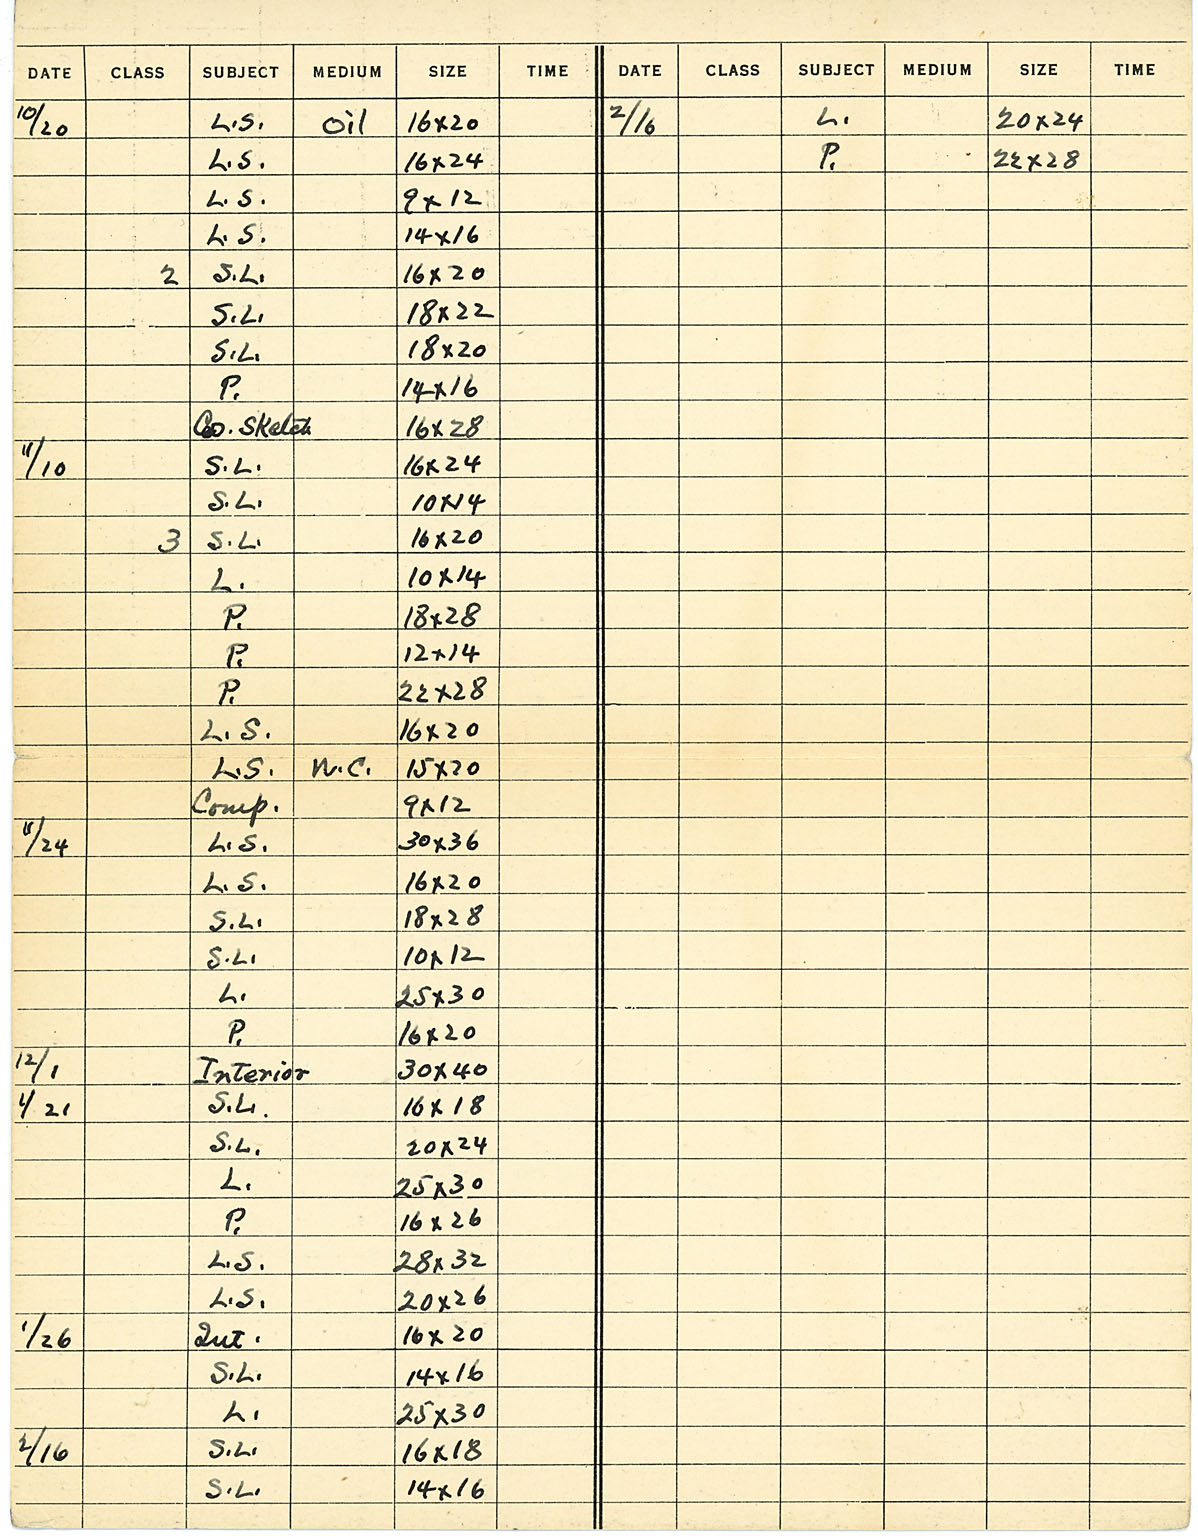 DATE CLASS SUBJECT MEDIUM SIZE TIME DATE CLASS SUBJECT MEDIUM SIZE TIME
10/20 L.S. Oil 16x20 2/16 L. 20x24
L.S. 16x24 P. 22x28
L.S. 9x12
L.S. 14x16
2 S.L. 16x20
S.L. 18x22
S.L. 18x20
P. 14x16
Co. Sketch 16x28
11/10 S.L. 16x24
S.L. 10x14
3 S.L. 16x20
L. 10x14
P. 18x28
P. 12x14
P. 22x28
L.S. 16x20
L.S. W.C. 15x20
Comp. 9x12
11/24 L.S. 30x36
L.S. 16x20
S.L. 18x28
S.L. 10x12
L. 25x30
P. 16x20
12/1 Interior 30x40
1/21 S.L. 16x18
S.L. 20x24
L. 25x30
P. 16x26
L.S. 28x32
L.S. 20x26
1/26 Int. 16x20
S.L. 14x16
L. 25x30
2/16 S.L. 16x18
S.L. 14x16